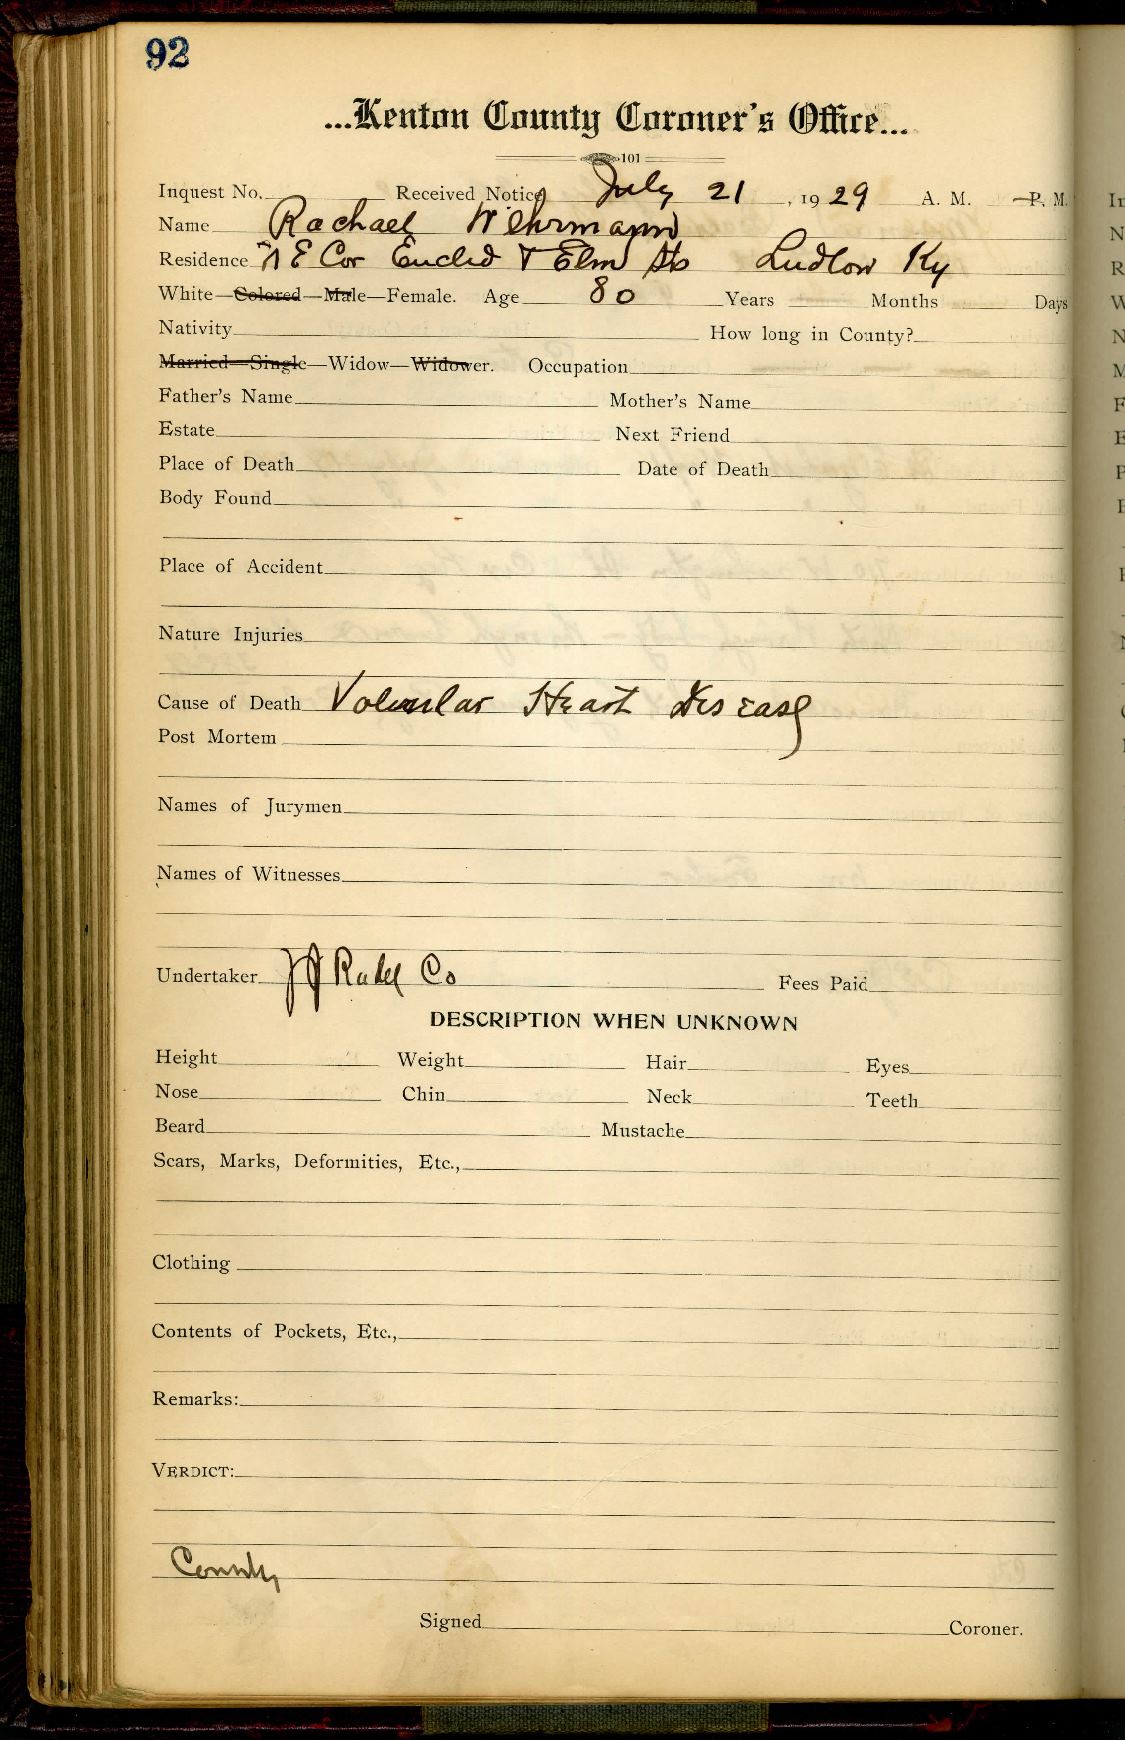 92
...Kenton County Coroner's Office...
101
Inquest No. Received Notice July 21, 1929 A. M. P. M.
Name Rachael Wehrmann
Residence N E Cor Euclid & Elm Sts Ludlow Ky
White—Colored—Male—Female. Age 80 Years Months Days
Nativity How long in County?
Married—Single—Widow—Widower. Occupation
Father's Name Mother's Name
Estate Next Friend
Place of Death Date of Death
Body Found
Place of Accident
Nature Injuries
Cause of Death Heart disease
Post Mortem
Names of Jurymen
Names of Witnesses
Undertaker JJ Radel Co Fees Paid
DESCRIPTION WHEN UNKNOWN
Height Weight Hair Eyes
Nose Chin Neck Teeth
Beard Mustache
Scars, Marks, Deformities, Etc.,
Clothing
Contents of Pockets, Etc.,
Remarks:
VERDICT:
County
Signed Coroner.